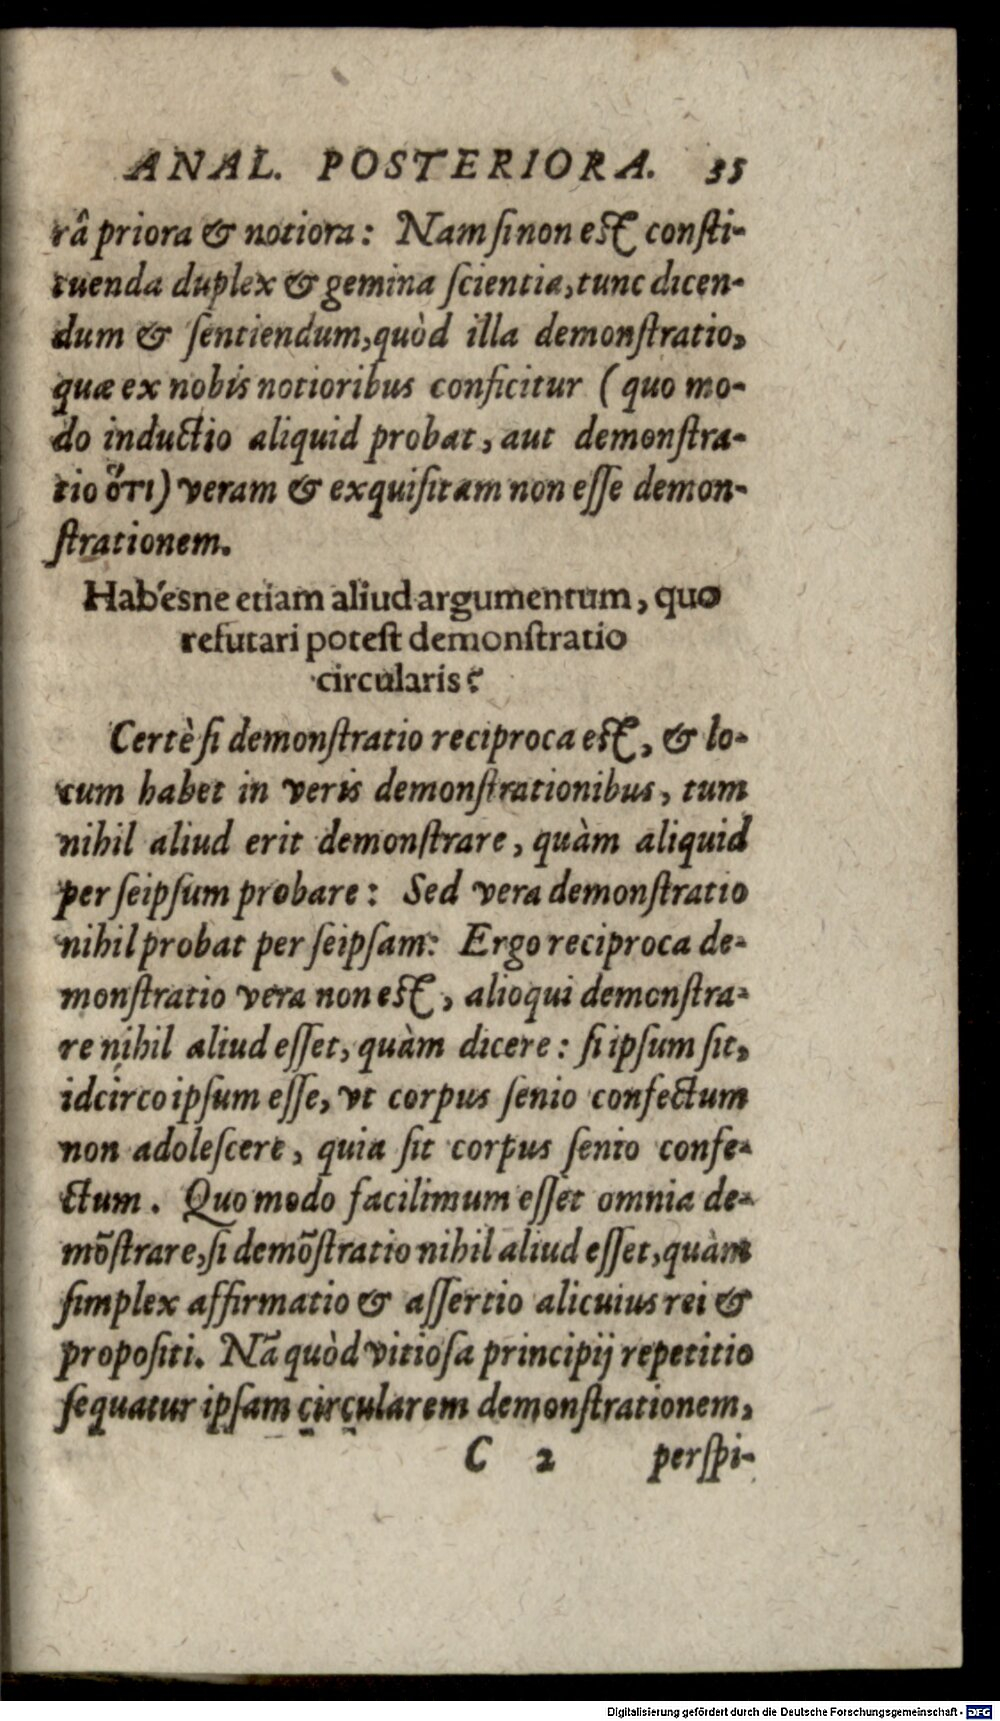 ANAL. POSTERIORA. 35
râ priora & notiora: Nam ſi non est conſti-
tuenda duplex & gemina ſcientia, tunc dicen-
dum & ſentiendum, quòd illa demonſtratio,
quæ ex nobis notioribus conficitur (quo mo-
do inductio aliquid probat, aut demonſtra-
tio ὅτι) veram & exquiſitam non eſſe demon-
ſtrationem.
Habésne etiam aliud argumentum, quo
refutari poteſt demonſtratio
circularis?
Certè ſi demonſtratio reciproca est, & lo-
cum habet in veris demonſtrationibus, tum
nihil aliud erit demonſtrare, quàm aliquid
per ſeipſum probare: Sed vera demonſtratio
nihil probat per ſeipſam: Ergo reciproca de-
monſtratio vera non est, alioqui demonſtra-
re nihil aliud eſſet, quàm dicere: ſi ipſum ſit,
idcirco ipſum eſſe, vt corpus ſenio confectum
non adoleſcere, quia ſit corpus ſenio confe-
ctum. Quo modo facilimum eſſet omnia de-
mõſtrare, ſi demõſtratio nihil aliud eſſet, quàm
ſimplex affirmatio & aſſertio alicuius rei &
propoſiti. Nã quòd vitioſa principij repetitio
ſequatur ipſam circularem demonſtrationem,
C 2 perſpi-
Digitalisierung gefördert durch die Deutsche Forschungsgemeinschaft - DFG